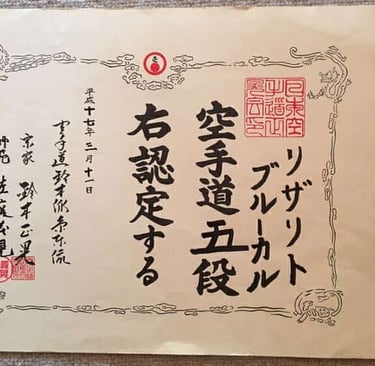 リザリト
ブルーカル
空手道五段
右認定する
平成十七年三月十一日
空手道鈴木派糸東流
宗家 鈴木正晃